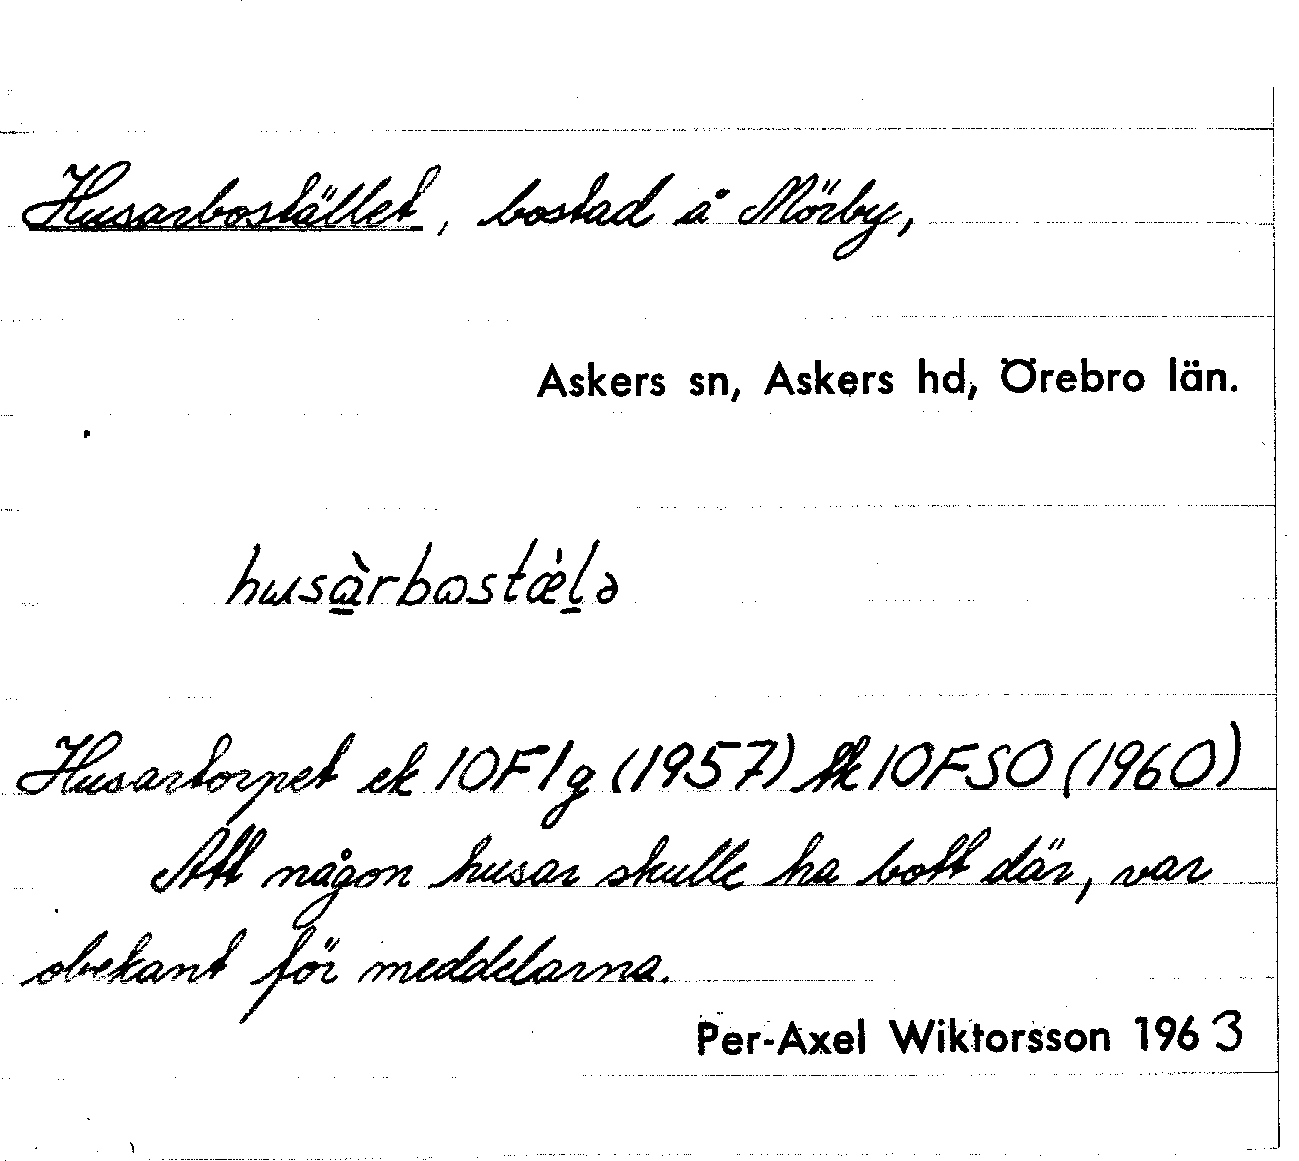 Husarbostället, bostad å Mörby,
Askers sn, Askers hd, Örebro län.
husàrbostæ̀lə
Husartorpet ek 10F1g (1957) tk 10FSO (1960)
Att någon husar skulle ha bott där, var
obekant för meddelarna.
Per-Axel Wiktorsson 1963